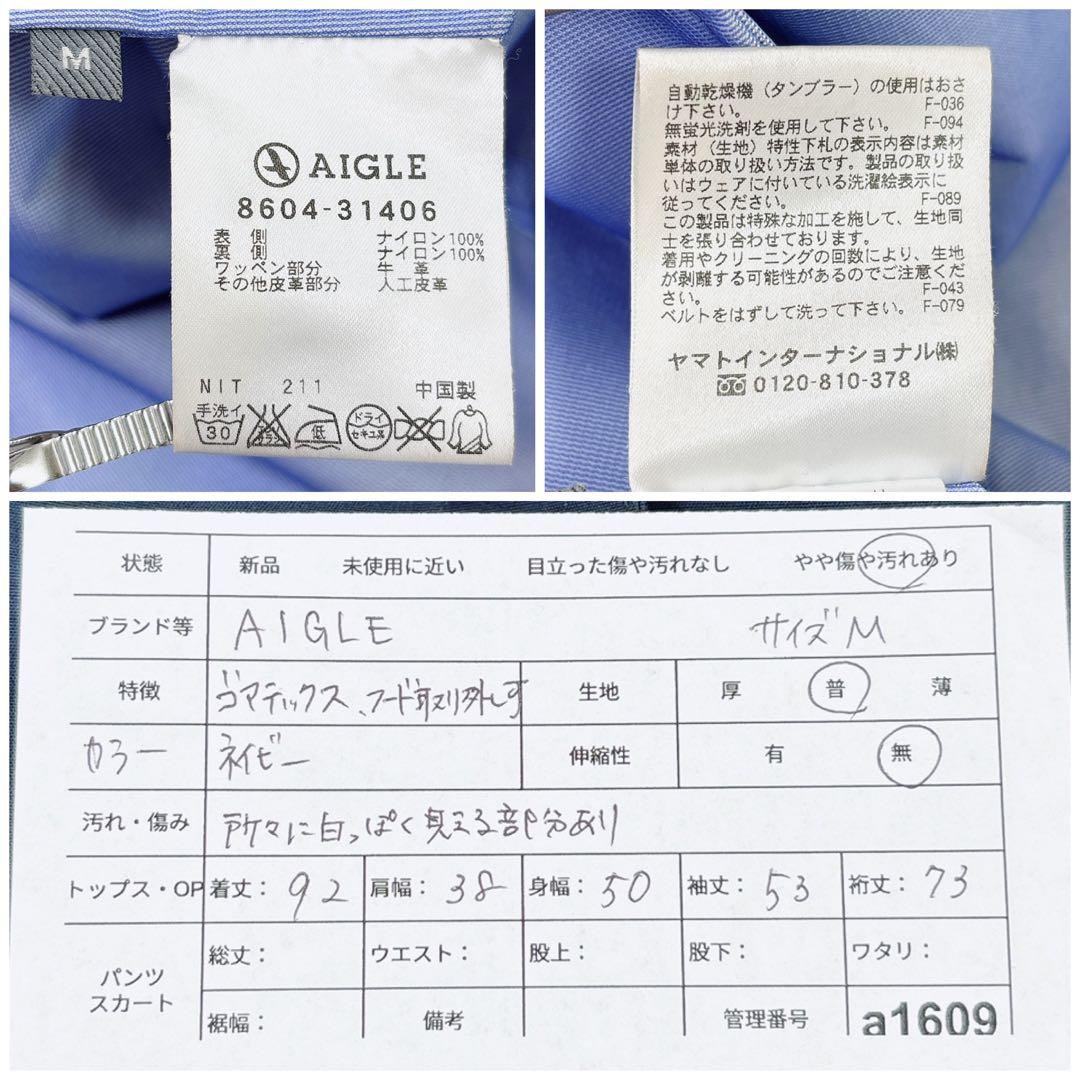 M
AIGLE
8604-31406
表 側 ナイロン100%
裏 側 ナイロン100%
ワッペン部分 牛 革
その他皮革部分 人工皮革
NIT 211 中国製
手洗イ
30 エンソサラシ 低 ドライ セキユ系
自動乾燥機（タンブラー）の使用はおさ
け下さい。 F-036
無蛍光洗剤を使用して下さい。 F-094
素材（生地）特性下札の表示内容は素材
単体の取り扱い方法です。製品の取り扱
いはウェアに付いている洗濯絵表示に
従ってください。 F-089
この製品は特殊な加工を施して、生地同
士を張り合わせております。
着用やクリーニングの回数により、生地
が剥離する可能性があるのでご注意くだ
さい。 F-043
ベルトをはずして洗って下さい。 F-079
ヤマトインターナショナル㈱
0120-810-378
状態 新品 未使用に近い 目立った傷や汚れなし やや傷や汚れあり
ブランド等 AIGLE サイズM
特徴 ゴマテックス、フード取り外し可 生地 厚 普 薄
カラー ネイビー 伸縮性 有 無
汚れ・傷み 所々に白っぽく見える部分あり
トップス・OP 着丈：92 肩幅：38 身幅：50 袖丈：53 裄丈：73
パンツ
スカート
総丈： ウエスト： 股上： 股下： ワタリ：
裾幅： 備考 管理番号 a1609